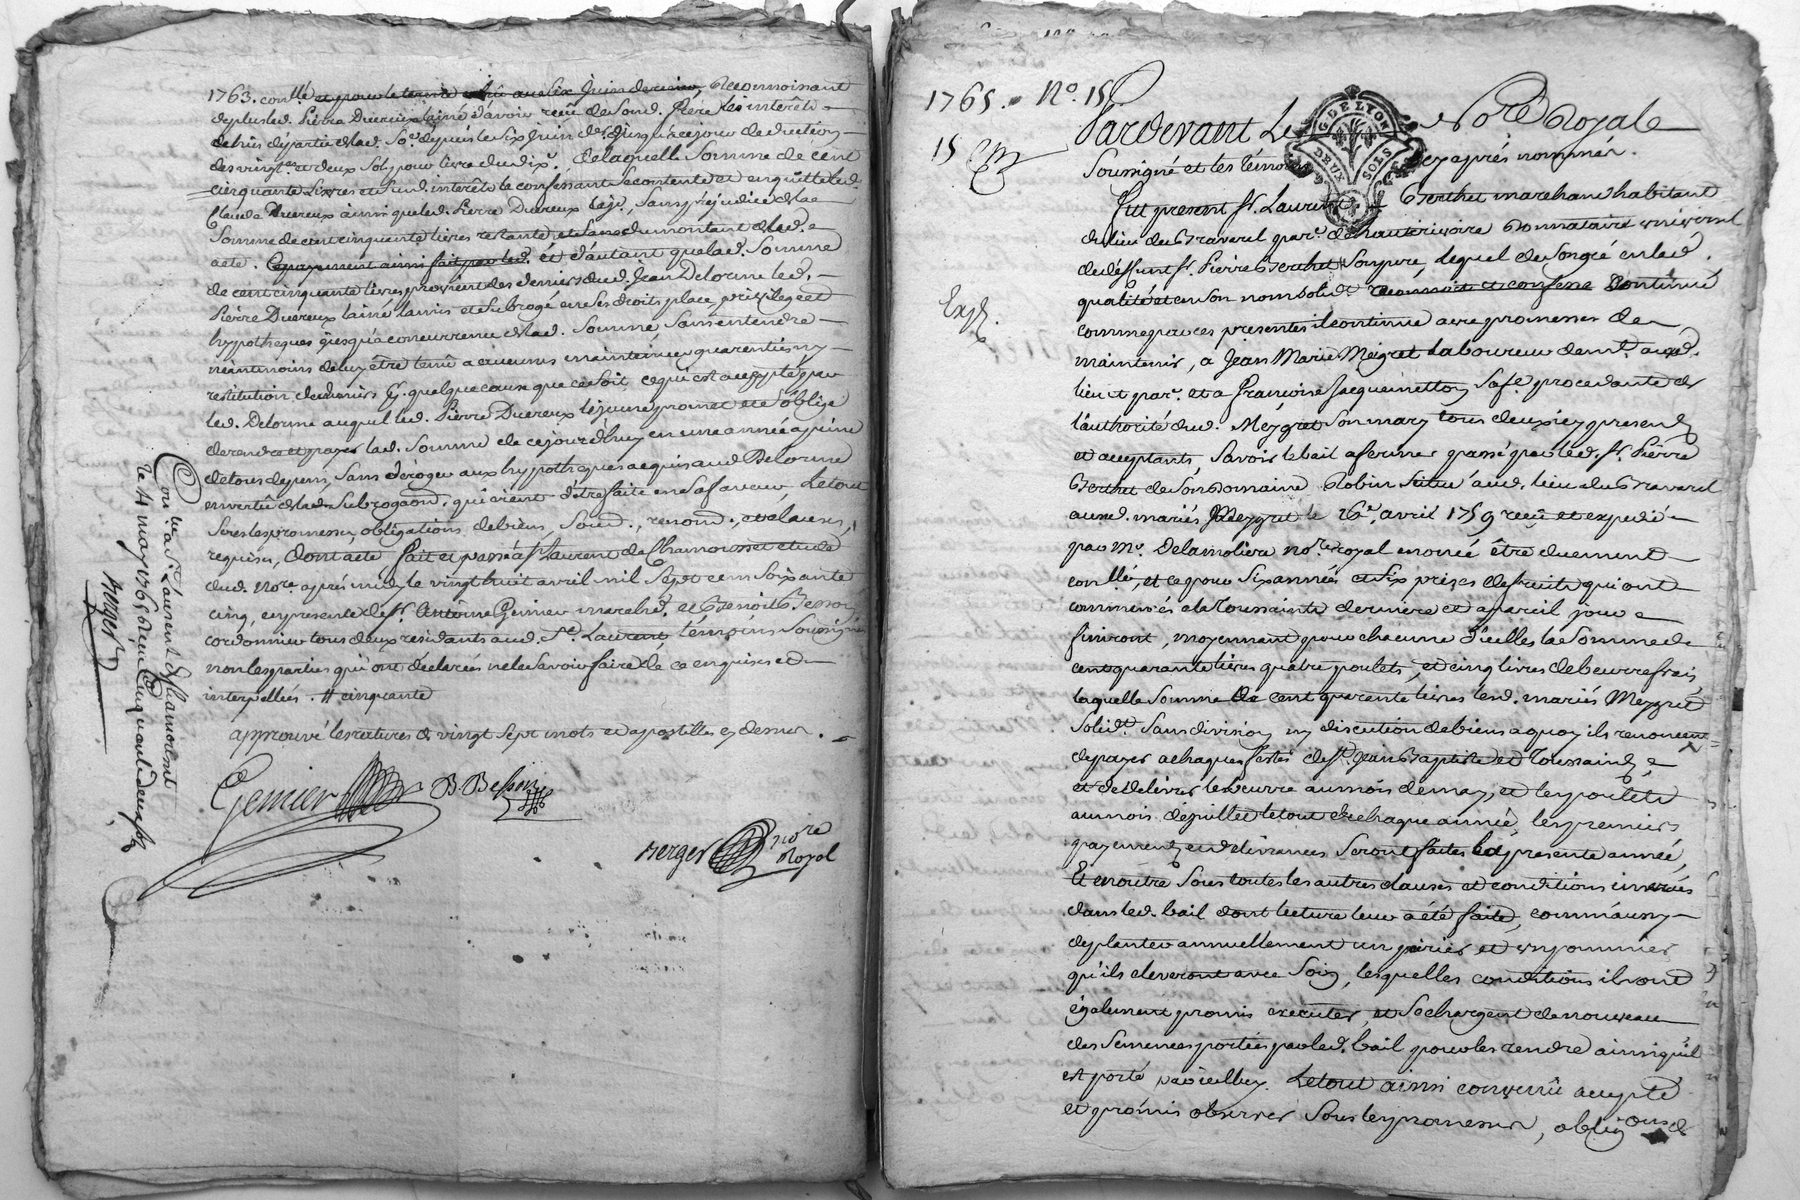 1763. con.llé et pour le terme échu au six Juin dernier, Reconnoissant
de plus led. Pierre Ducreux laîné d'avoir reçu de sond. frere les interêts
de lad. So.e depuis le six Juin d.er jusqu'à ce jour
des vingt.es et deux Sols pour livre du dix.e, de laquelle Somme de cent
cinquante Livres et sesd. interêts le confessant se contente et en quitte led.
Claude Ducreux ainsi que led. Pierre Ducreux le je., sans préjudice de la
Somme de cent cinquante livres restante du montant dud.
acte. Le payement ainsi fait par led. et d'autant que lad. Somme
de cent cinquante livres provient des deniers dud. Jean Delorme led.
Pierre Ducreux laîné la mis et subrogé en ses droits place, privilege et
hypotheques jusqu'à concurrence de lad. Somme sans entendre
neantmoins de luy être tenu a aucunes maintenües garenties ny
restitution de deniers p.r quelque cause que ce soit, ce qui est accepté par
led. Delorme auquel led. Pierre Ducreux le jeune promet et s'oblige
de rendre et payer lad. Somme de ce jourd'huy en une année a peine
de tous depens, sans déroger aux hypotheques acquis aud. Delorme
en vertû de lad. Subrogaôn. qui vient d'être faite en sa faveur, Le tout
sous les promesses, obligations de biens, Soum., renond., et clauses,
requises, dont acte fait et passé a St. Laurent de Chamousset etude
dud. No.re après midy le vingt huit avril mil Sept cent Soixante
cinq, en presence de Sr. Antoine Genier march.d et Benoit Besson
cordonnier tous deux residants aud. St. Laurent, témoins Soussignés
non les parties qui ont déclarées ne le savoir faire de ce enquises et
interpellées. # cinquante
approuvé les ratures de vingt Sept mots et apostilles cy dessus.
Genier B. Besson
Berger no.re Royal
Con.llé a St. Laurent de Chamousset
le 4 may 1765 Reçu cinquante deux s.
Berger
1765. N.o 15
15
Exp.
GG DE LYON
DEUX SOLS
Pardevant Le No.re Royal
Soussigné et les témoins cy après nommés.
Fut present Sr. Laurent Berthet marchand habitant
du lieu du Bravard par.e d'hauterivoire donnataire universel
de déffunt Sr. Pierre Berthet Son pere, lequel de Son gré en lad.
qualité et en son nom solid.t reconnoit et confesse Continué
comme par ces presentes il continue avec promesses de
maintenir, a Jean Marie Meigret Laboureur dem.t aud.
lieu et par.e et a françoise Jacquemetton Sa fe. procedante de
l'authorité dud. Meygret Son mary tous deux icy presents
et acceptants, Savoir le bail a ferme passé par led. Sr. Pierre
Berthet de Son Domaine Robin Situé aud. lieu du Bravard
auxd. mariés Meygret le 26.e avril 1759 reçu et expedié
par Me. Delamoliere no.re royal enoncé être duement
con.llé, et ce pour Six années et Six prises de fruits qui ont
commencés a la Toussaints derniere et a pareil jour
finiront, moyennant pour chacune d'icelles la Somme de
cent quarante livres quatre poulets, et cinq livres de beurre frais
laquelle Somme de cent quarante livres lesd. mariés Meygret
Solid.t Sans division ny discution de biens a quoy ils renoncent
de payer a chaques festes de St. Jean Baptiste et Toussaints,
et de delivrer le beurre au mois de may, et les poulets
au mois de juillet le tout de chaque année, les premiers
payements en delivrances Seront faites lad. presente année,
Et en outre Sous toutes les autres clauses et conditions inserées
dans led. bail dont lecture leur a été faite, comm'aussy
de planter annuellement un poirier et un pommier
qu'ils eleveront avec Soin, lesquelles conditions ils ont
également promis executer, et Se chargent de nouveau
des Semences portées par led. bail pour les rendre ainsi qu'il
est porté par icelluy. Le tout ainsi convenû accepté
et promis observer Sous les promesses, oblig.ons de